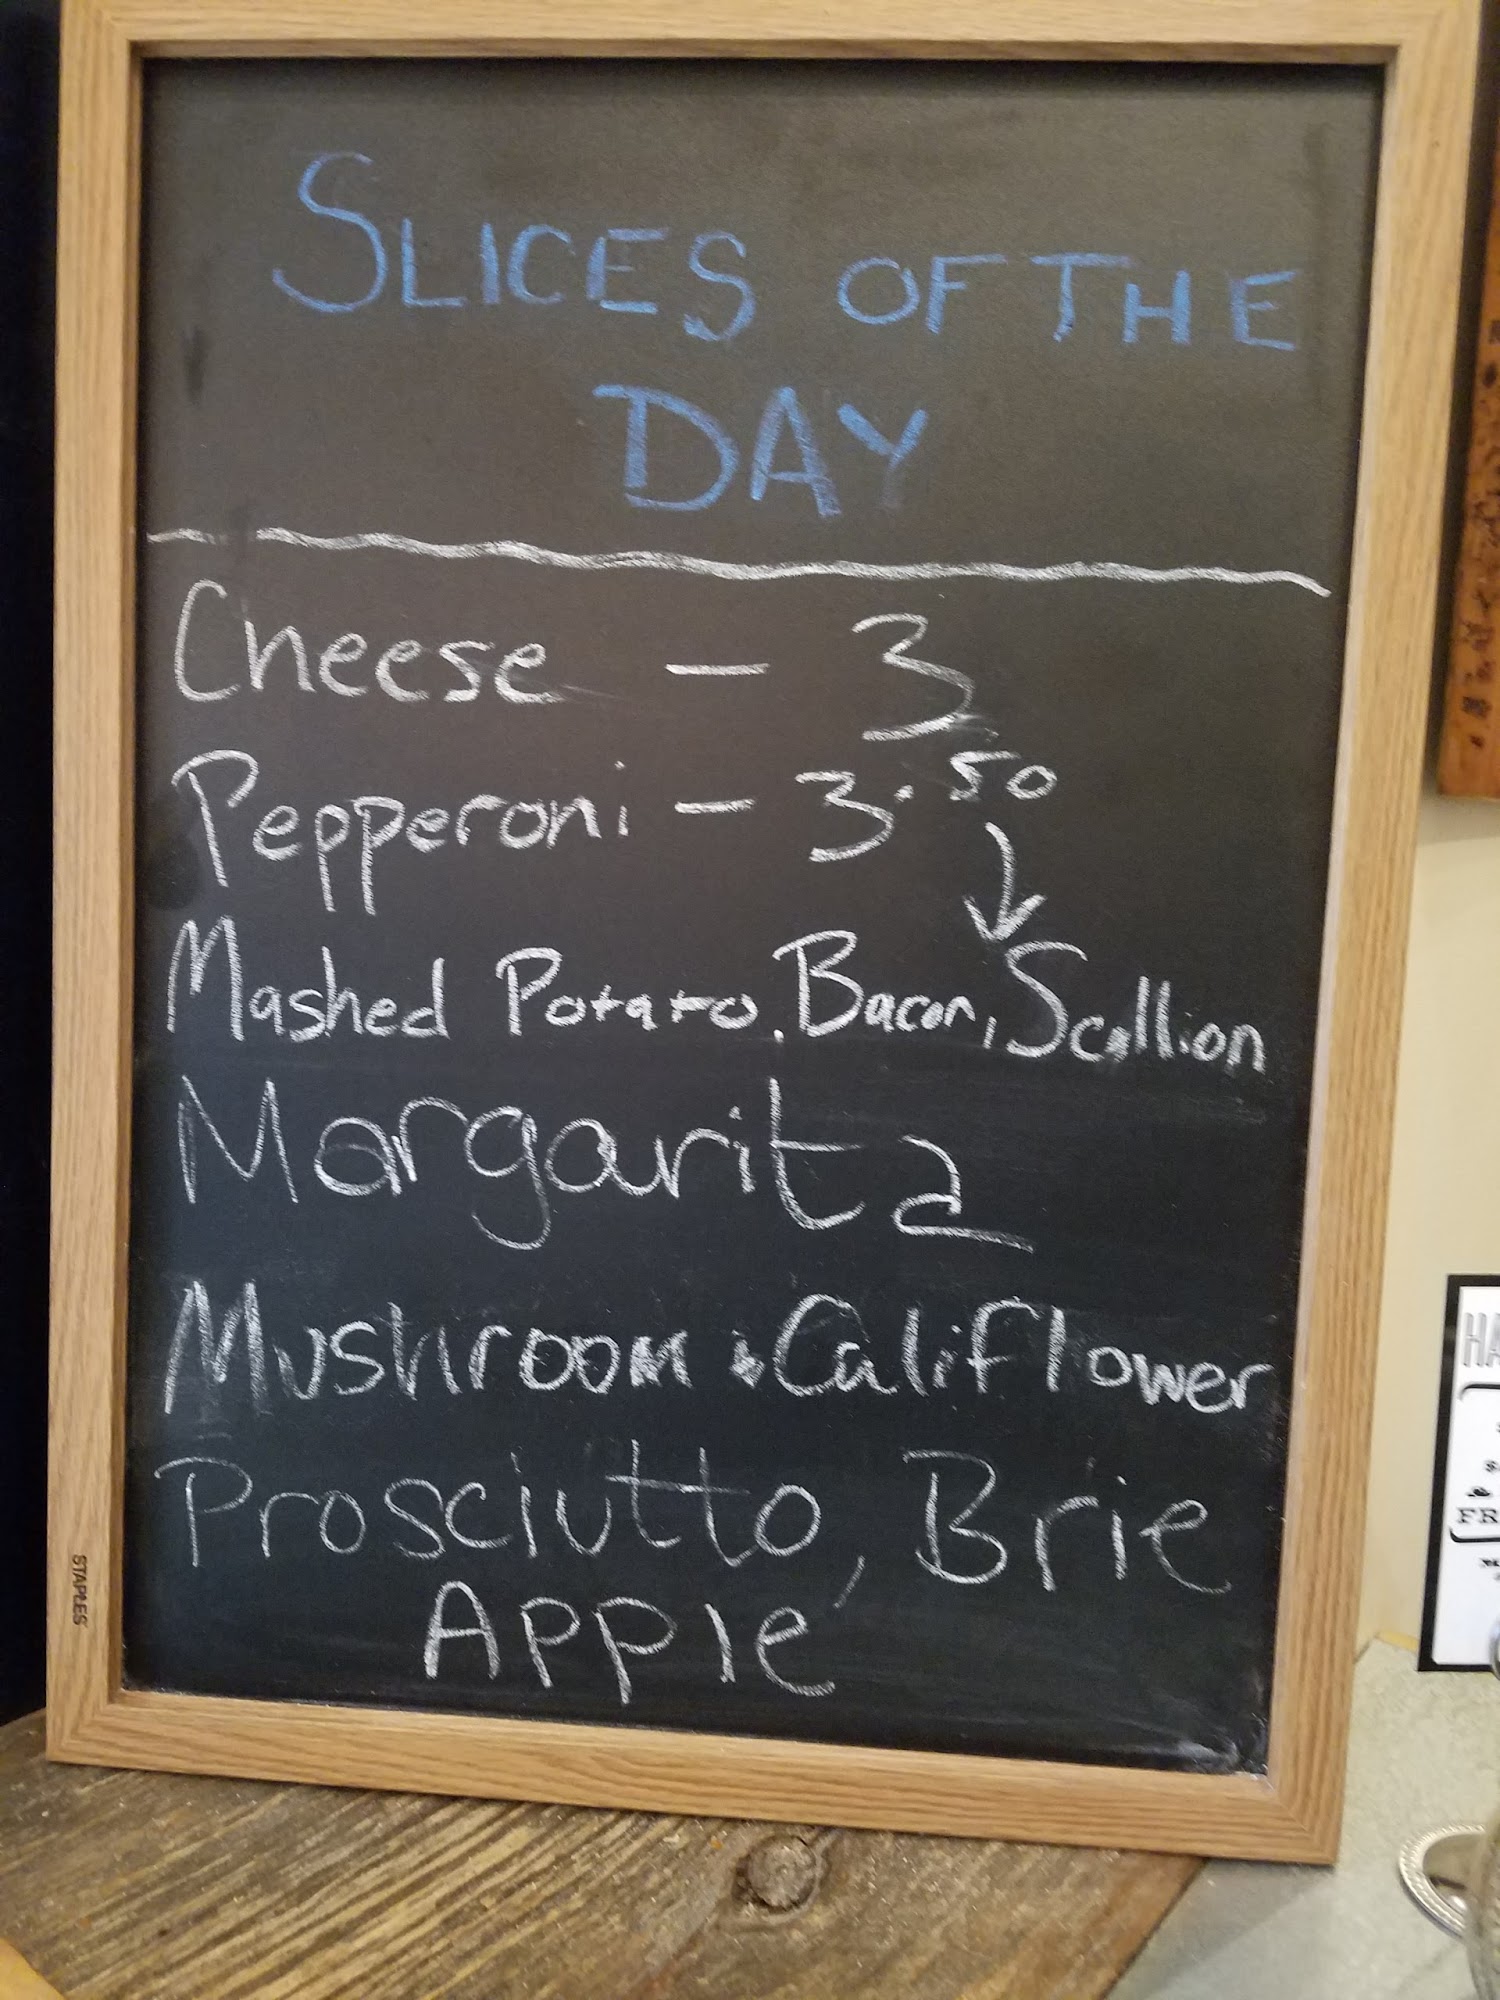 SLICES OF THE
DAY
Cheese - 3
Pepperoni - 3.50
↓
Mashed Potato, Bacon, Scallion
Margarita
Mushroom & Califlower
Prosciutto, Brie,
Apple
STAPLES
HA
FR